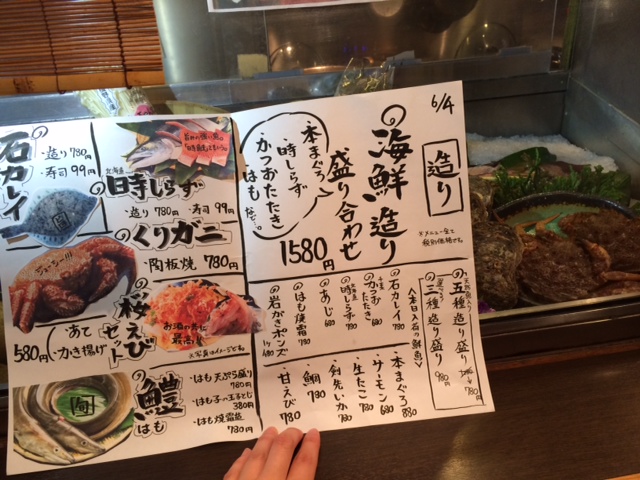 6/4
造り
※メニュー全て
税別価格です。
海鮮造り
盛り合わせ
1580円
本まぐろ
時しらず
かつおたたき
はも
など。
五種造り盛り
780円
三種造り盛り
980円
<本日入荷の鮮魚>
・石カレイ 780
・かつおたたき 680
・時しらず 780
・あじ 580
・はも焼霜 780
・岩がきポンズ 480
・本まぐろ 880
・サーモン 680
・生たこ 780
・剣先いか 780
・鯛 780
・甘えび 780
石カレイ
・造り780円
・寿司99円
旬
北海道
時しらず
・造り780円 ・寿司99円
くりガニ
・甲板焼 780円
ジューシー!!!
桜えび
セット
・あて
・かき揚げ
580円
お酒の当に
最高!
※写真はイメージです。
鱧
はも
・はも天ぷら盛り
780円
・はも子の玉子とじ
380円
・はも焼霜造
780円
旬